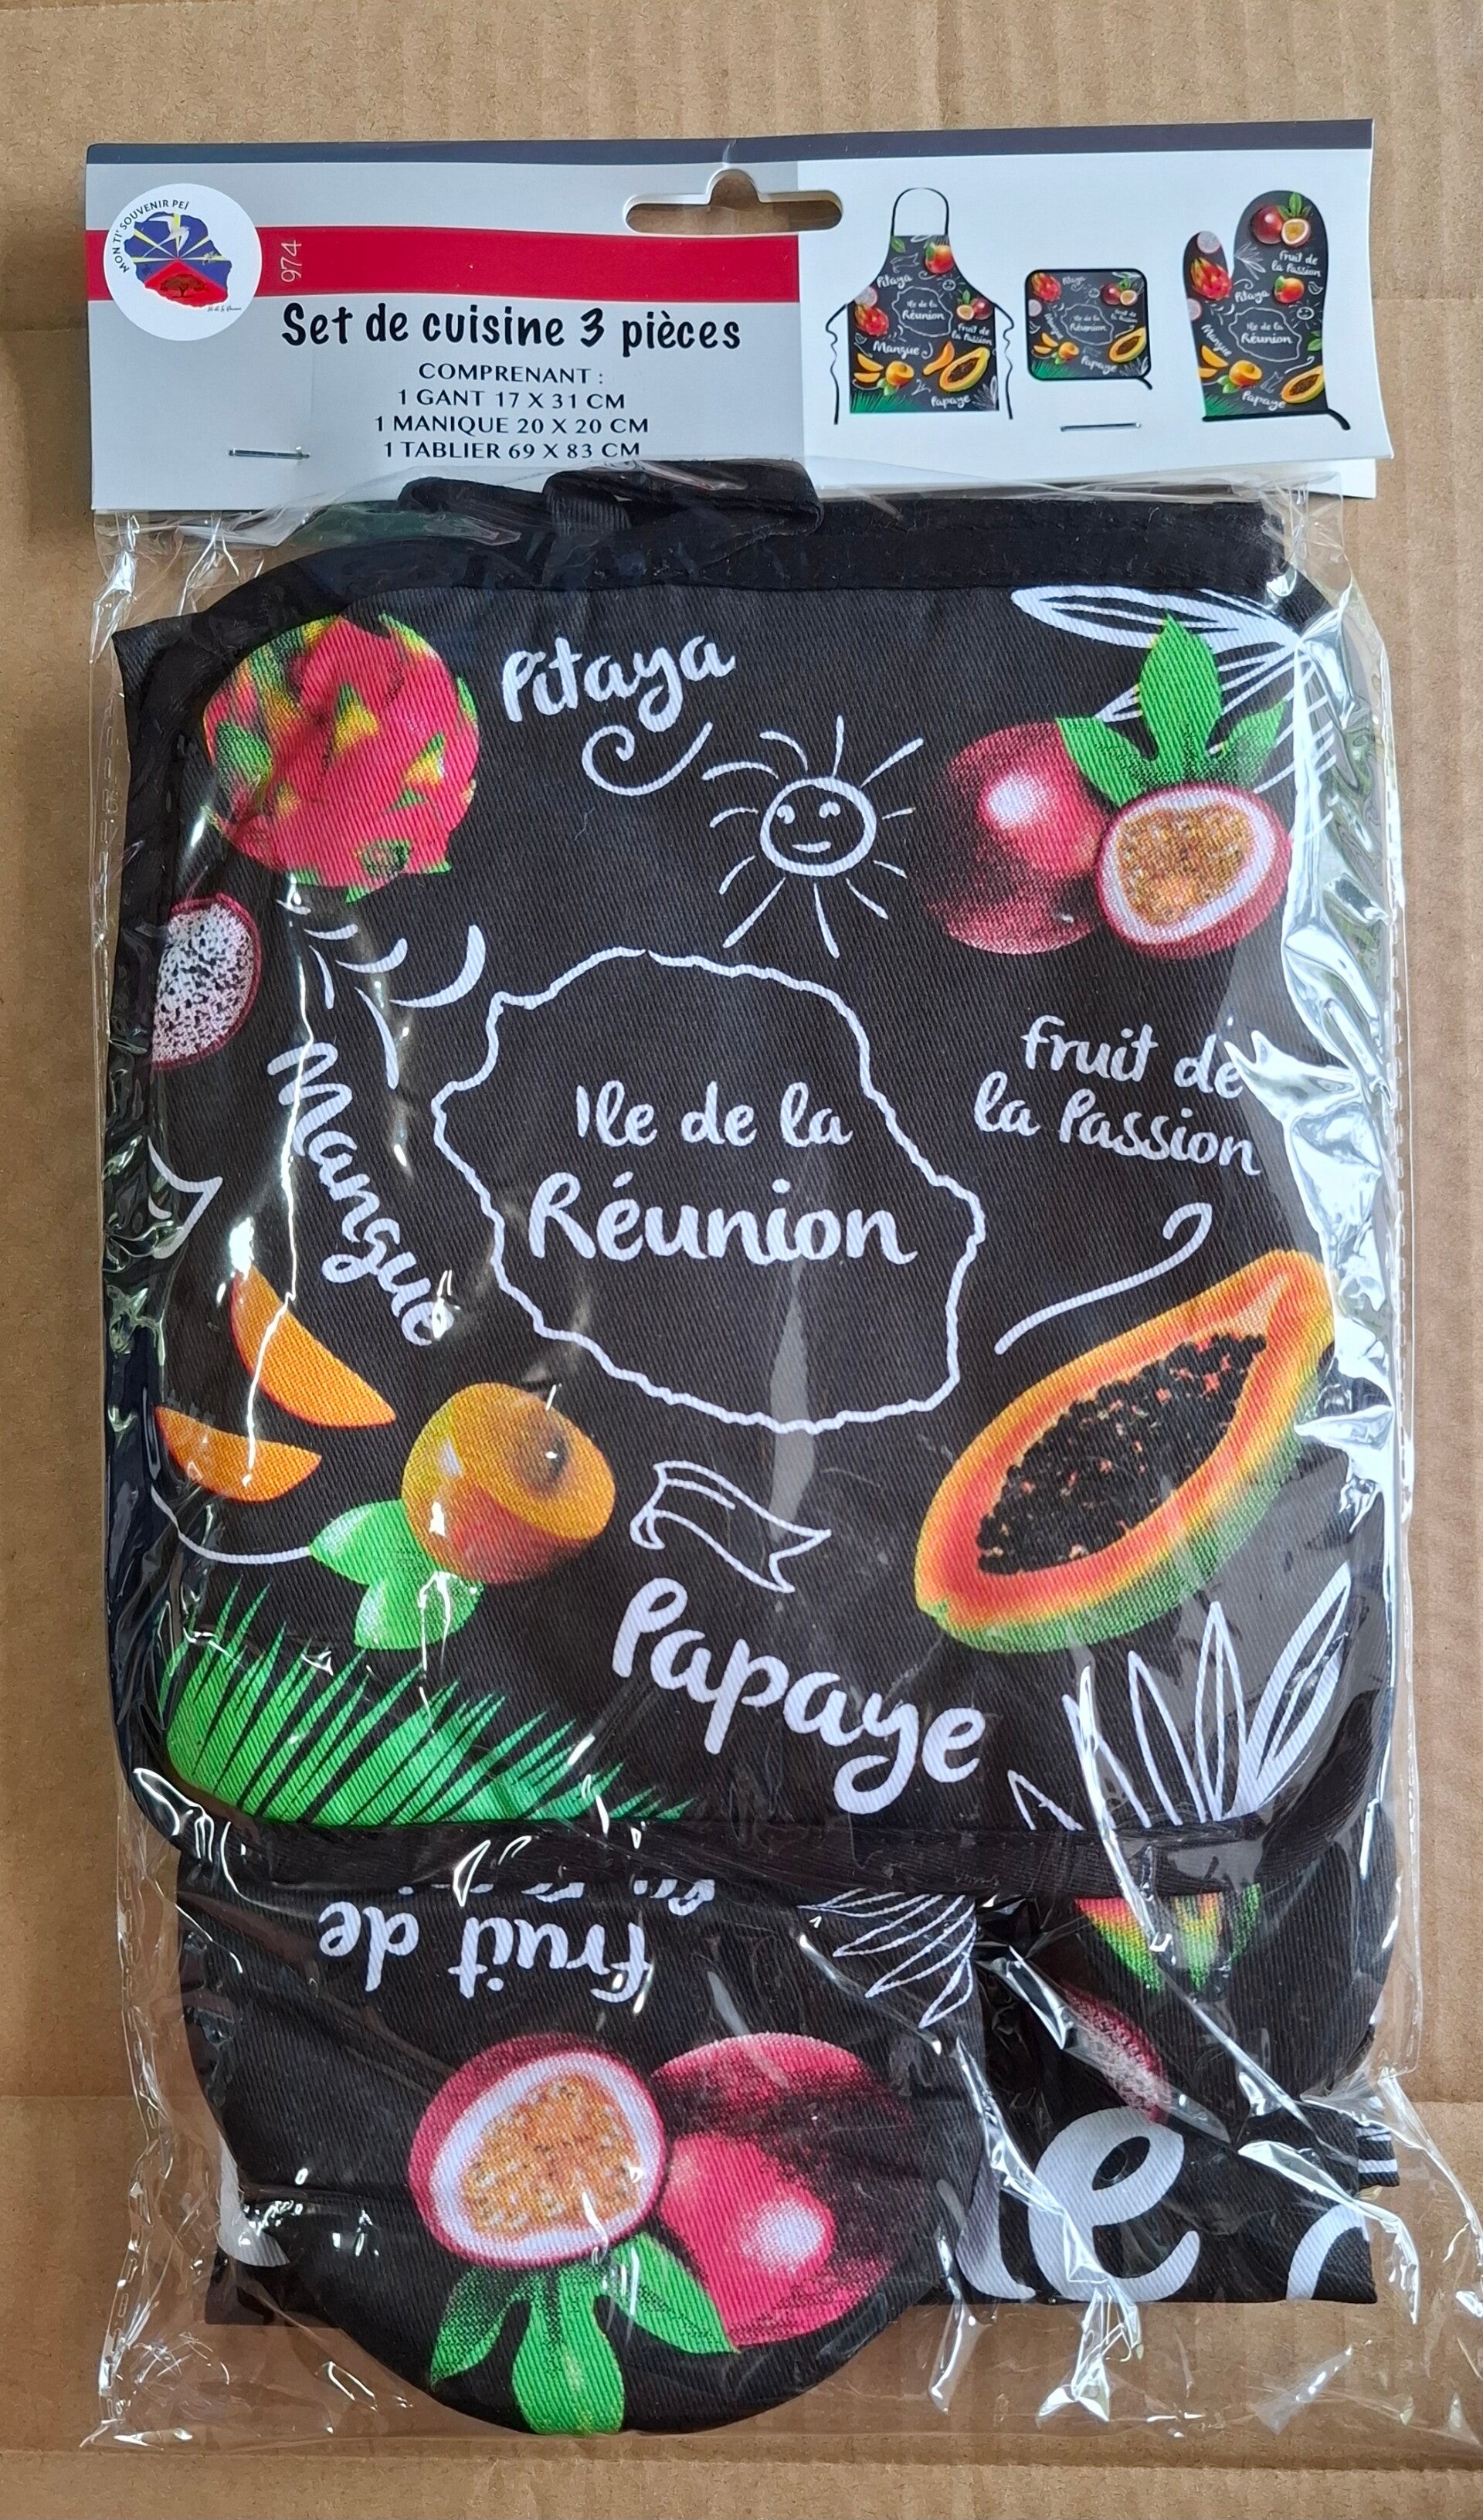 MON TI' SOUVENIR PEÏ
974
Set de cuisine 3 pièces
COMPRENANT :
1 GANT 17 X 31 CM
1 MANIQUE 20 X 20 CM
1 TABLIER 69 X 83 CM
Pitaya
Ile de la
Réunion
Fruit de
la Passion
Mangue
Papaye
Pitaya
Ile de la
Réunion
Papaye
Fruit de
la Passion
Pitaya
Mangue
Ile de la
Réunion
Papaye
Pitaya
Fruit de
la Passion
Mangue
Ile de la
Réunion
Papaye
Fruit de